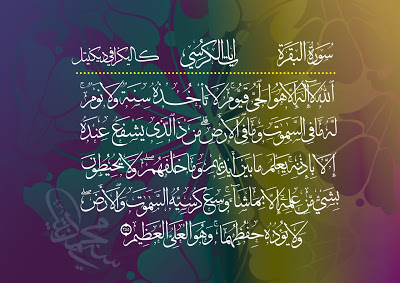 سورة البقرة الكرسي كاليكرافي ديكيتل
الله لا إله إلا هو الحي القيوم لا تأخذه سنة ولا نوم
له ما في السموت وما في الأرض من ذا الذي يشفع عنده
إلا بإذنه يعلم ما بين أيديهم وما خلفهم ولا يحيطون
بشيء من علمه إلا بما شاء وسع كرسيه السموت والأرض
ولا يؤده حفظهما وهو العلي العظيم ٢٥٥